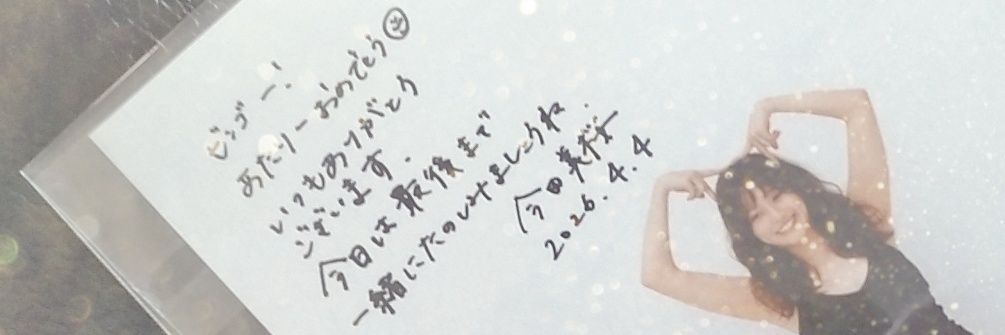 ビンゴー!
あたりーおめでとう
いつもありがとう
ございます.
今日は最後まで
一緒にたのしみましょうね.
今田美桜
2026.4.4